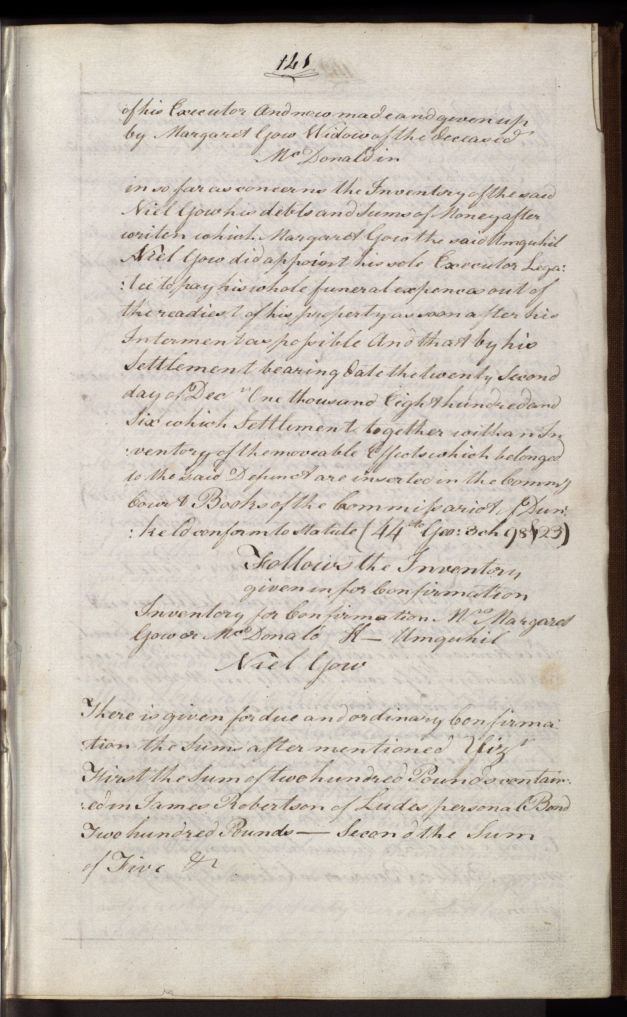 141
of his Executor And now made and given up
by Margaret Gow Widow of the deceased
McDonald in
in so far as concerns the Inventory of the said
Niel Gow his debts and Sums of Money after
writen which Margaret Gow the said Umquhil
Niel Gow did appoint his sole Executor Lega:
:tee to pay his whole funeral expences out of
the readiest of his property as soon after his
Interment as possible And that by his
Settlement bearing date the twenty Second
day of Decr One thousand Eight hundred and
Six which Settlement together with an In
:ventory of the moveable Effects which belonged
to the said Defunct are inserted in the Commy
Court Books of the Commissariot of Dun:
:keld conform to Statute (44th Geo: 3 ch 98 § 23)
Follows the Inventory
given in for Confirmation
Inventory for Confirmation Mrs Margaret
Gow or McDonald Umquhil
Niel Gow
There is given for due and ordinary Confirma:
:tion the Sums after mentioned Vizt
First the Sum of two hundred Pounds contain:
:ed in James Robertson of Ludes personal Bond
Two hundred Pounds — Second the Sum
of Five &c